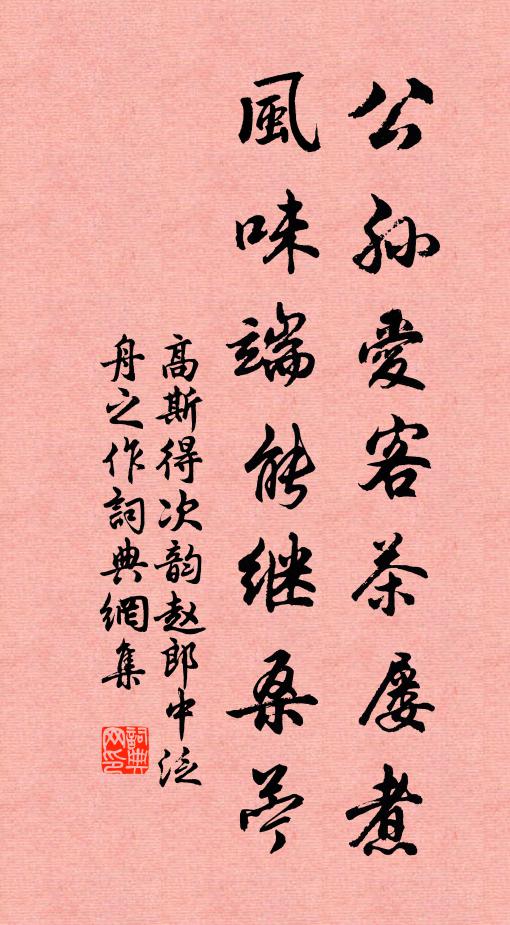 公孙愛客茶屡煮
風味端能继桑苎
高斯得次韵赵郎中泛
舟之作詞典網集
詞典網印